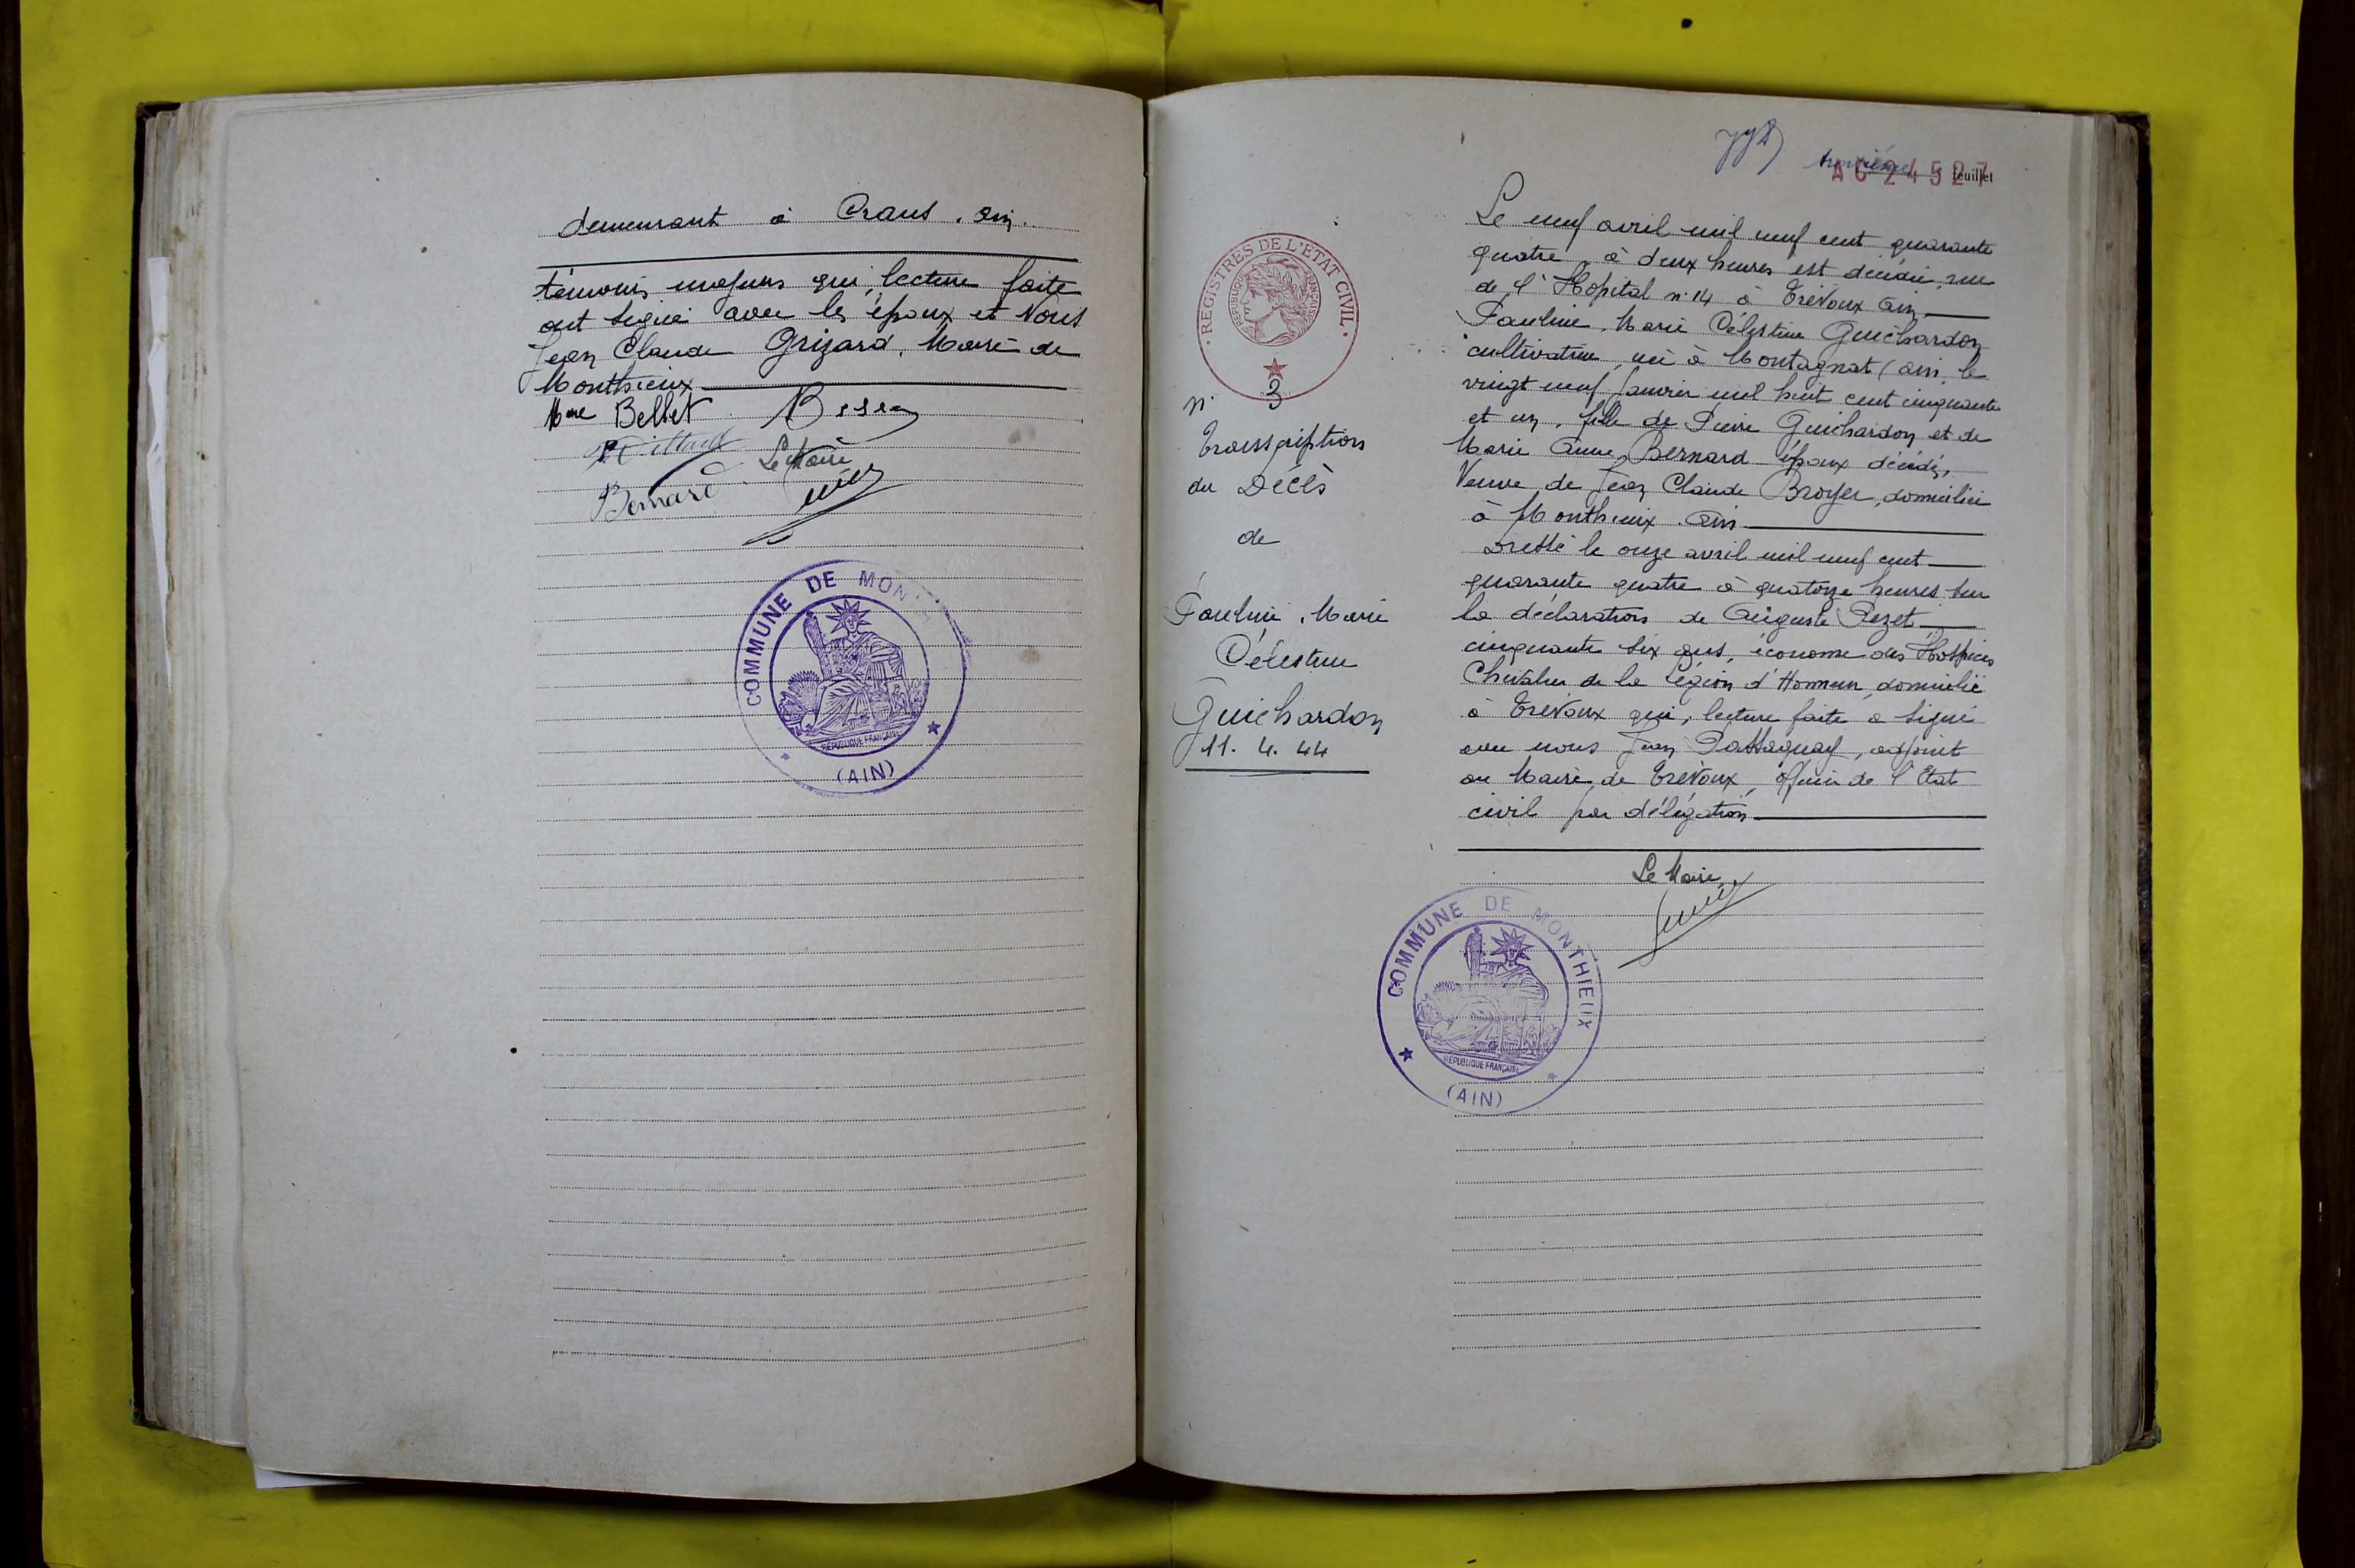 demeurant à Crans. Ain.
témoins majeurs qui, lecture faite
ont signé avec les époux et Nous
Jean Claude Grizard, Maire de
Monthieux
Mme Bellet
Le Maire
Bernard
COMMUNE DE MONTH
RÉPUBLIQUE FRANÇAISE
(AIN)
feuillet
AC 24527
REGISTRES DE L'ETAT CIVIL
REPUBLIQUE FRANÇAISE
n° 3
Transcription
du Décès
de
Pauline. Marie
Célestine
Guichardon
11. 4. 44
Le neuf avril mil neuf cent quarante
quatre, à deux heures est décédée, rue
de l'Hopital n° 14 à Trévoux Ain,
Pauline, Marie Célestine Guichardon
cultivatrice, née à Montagnat (Ain, le
vingt neuf Janvier mil huit cent cinquante
et un, fille de Pierre Guichardon et de
Marie Anne Bernard époux décédés,
Veuve de Jean Claude Broyer, domiciliée
à Monthieux. Ain
Dressé le onze avril mil neuf cent
quarante quatre à quatorze heures sur
la déclaration de Auguste Pezet
cinquante six ans, économe des Hospices
Chevalier de la Légion d'Honneur, domicilié
à Trévoux qui, lecture faite a signé
avec nous Jean, adjoint
au Maire de Trévoux, Officier de l'Etat
civil par délégation
Le Maire
COMMUNE DE MONTHIEUX
RÉPUBLIQUE FRANÇAISE
(AIN)